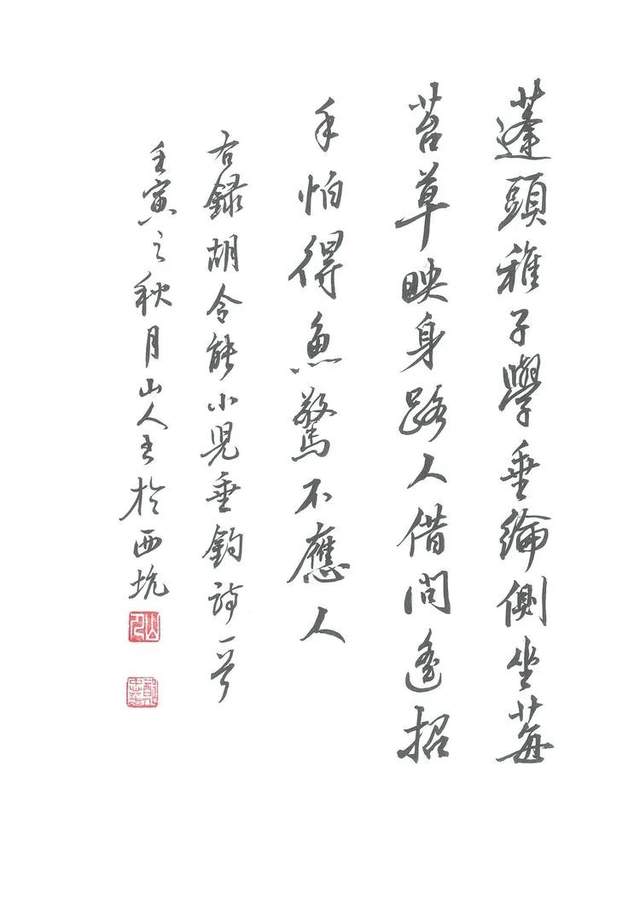 蓬頭稚子學垂綸側坐莓
苔草映身路人借問遙招
手怕得魚驚不應人
右録胡令能小兒垂釣詩一首
壬寅之秋月山人書於西坑